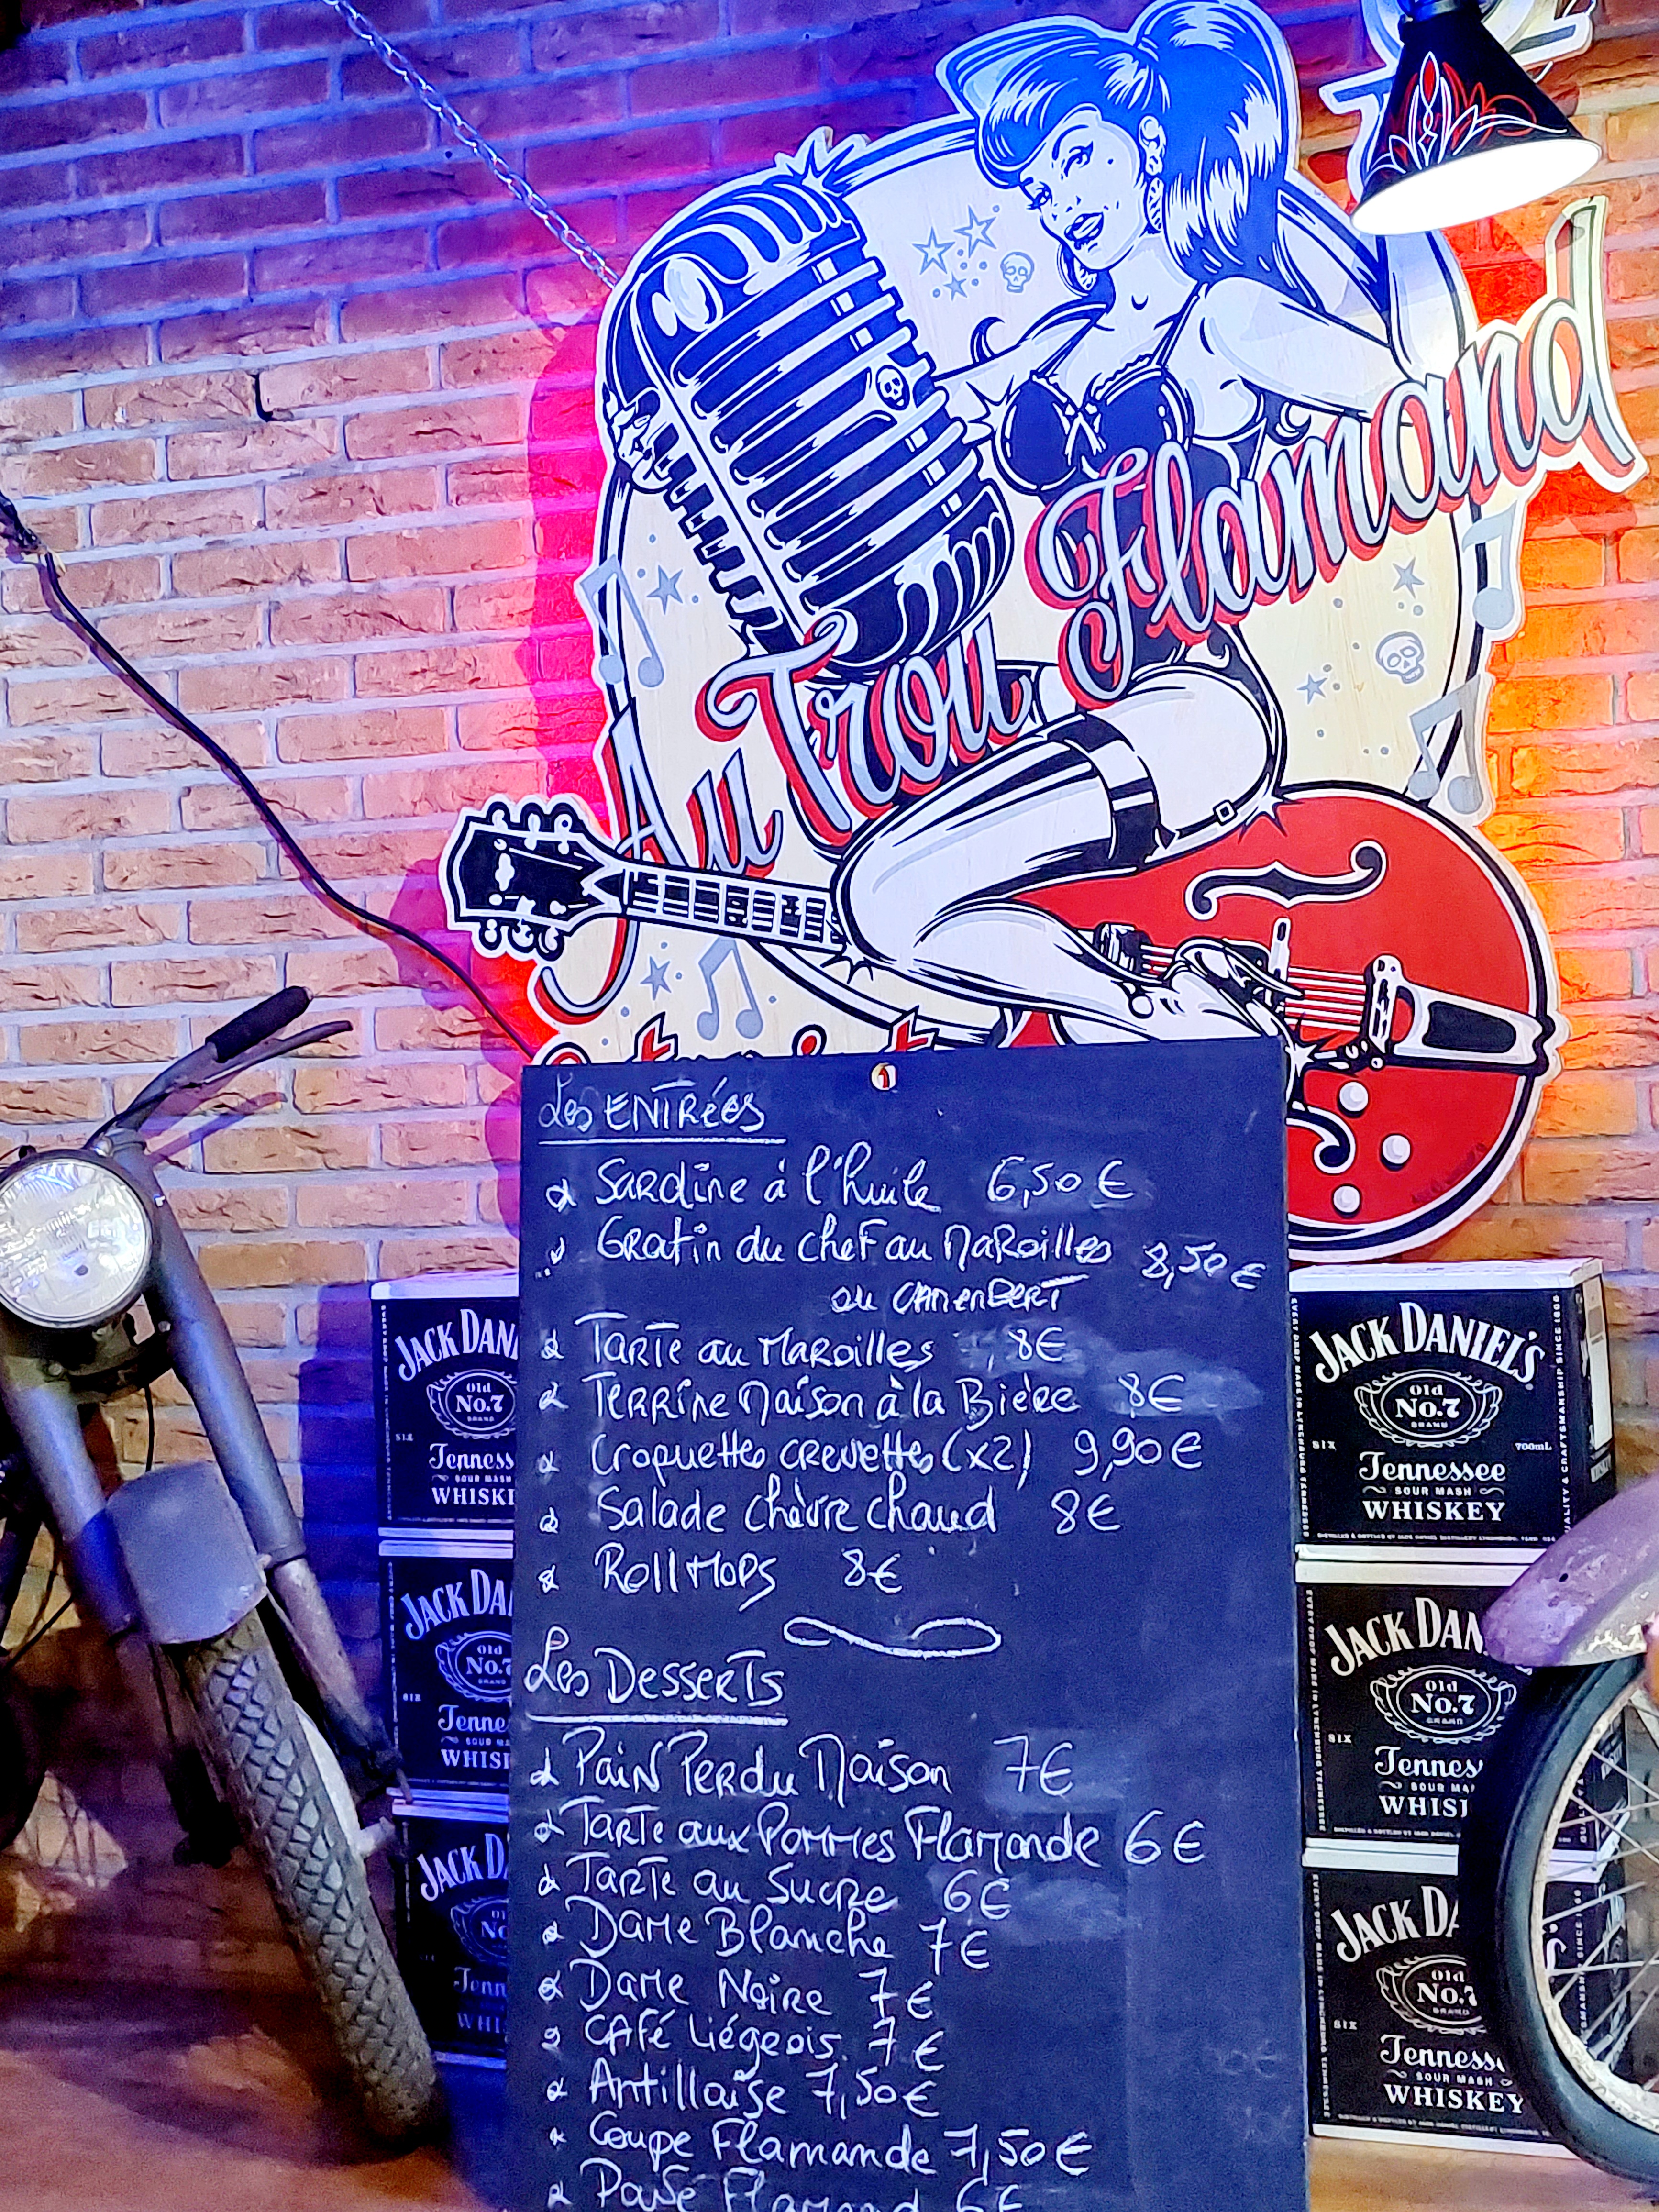 Au Trou Flamand
Les ENTRÉES
Sardine à l'huile 6,50 €
Gratin du chef au Maroilles 8,50 €
ou CAMENBERT
Tarte au Maroilles 8€
Terrine Maison à la Bière 8€
Croquettes crevettes (x2) 9,90€
Salade chèvre chaud 8€
RollMops 8€
Les Desserts
Pain Perdu Maison 7€
Tarte aux Pommes Flamande 6€
Tarte au Sucre 6€
Dame Blanche 7€
Dame Noire 7€
CAFé Liégeois 7€
Antillaise 7,50€
Coupe Flamande 7,50€
Flamand 6€
JACK DAN
Old
No.7
BRAND
Tenness
SOUR MASH
WHISK
JACK DA
Old
No.7
BRAND
Tenne
WHIS
JACK D
Tenn
WHI
JACK DANIEL'S
Old
No.7
BRAND
SIX
700mL
Tennessee
SOUR MASH
WHISKEY
JACK DAN
Old
No.7
BRAND
SIX
Tennes
SOUR MA
WHIS
JACK DA
Old
No.7
BRAND
SIX
Tenness
SOUR MASH
WHISKEY